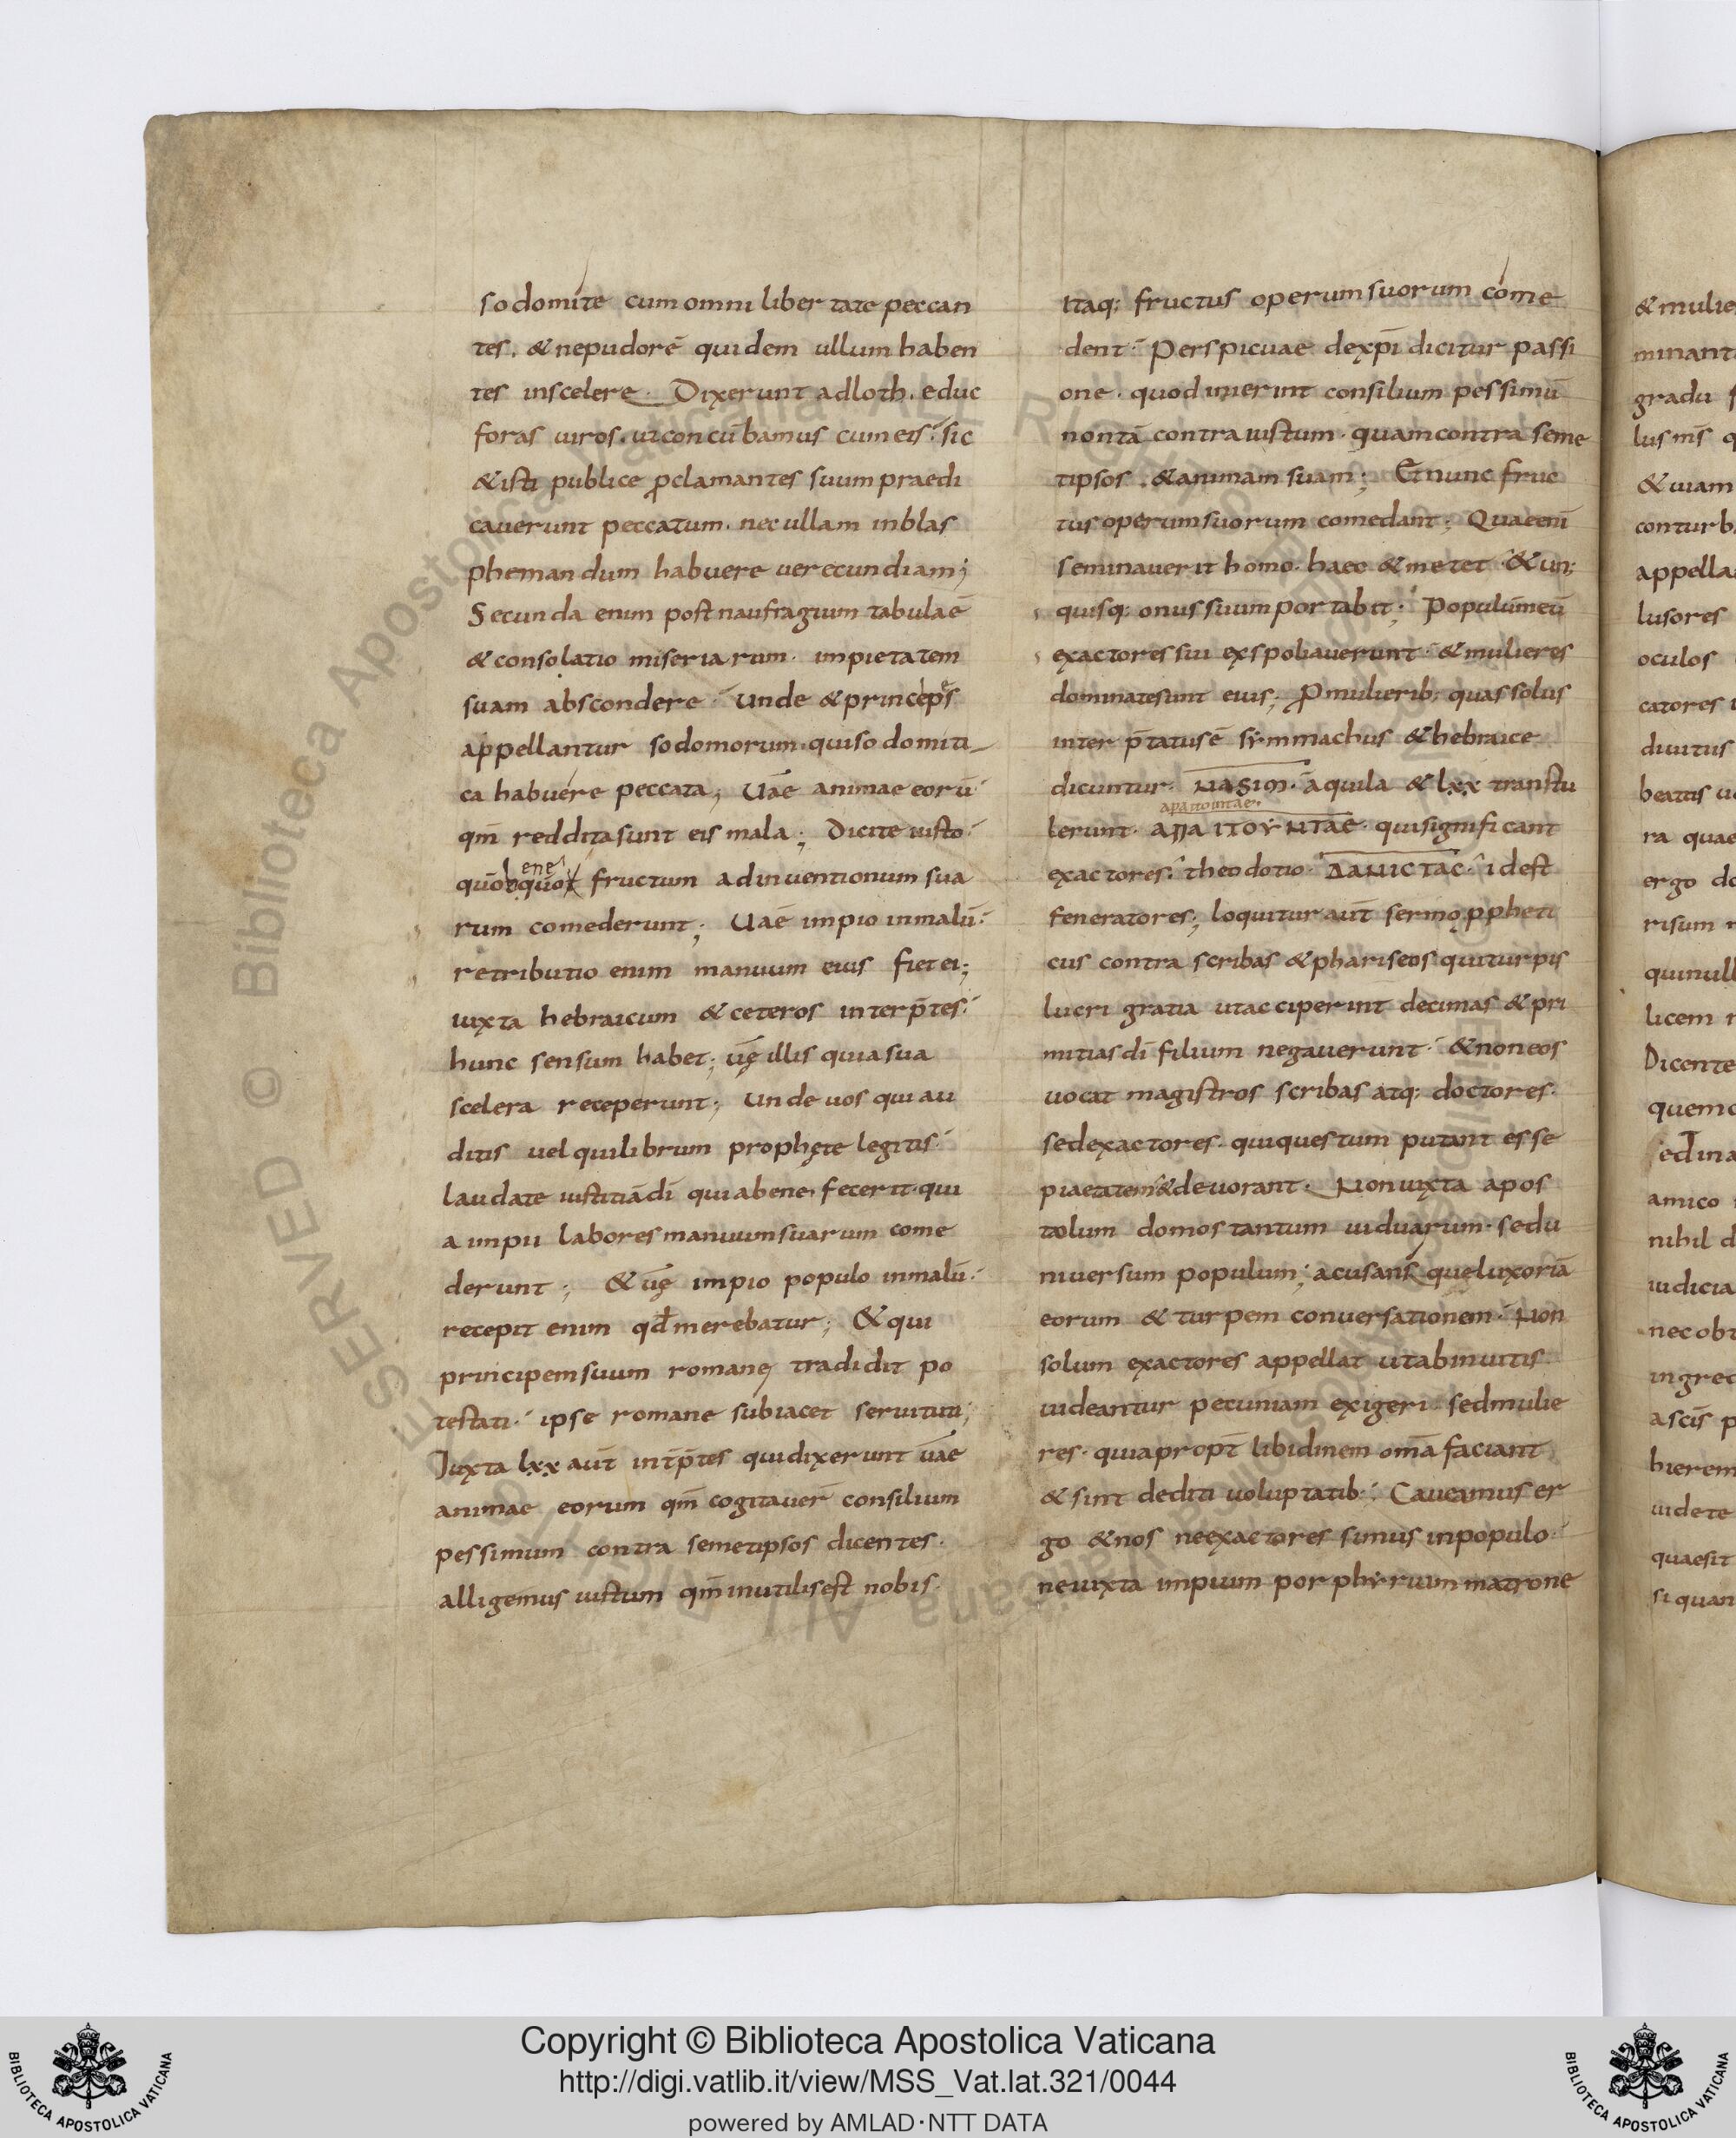 sodomite cum omni libertate peccan
tes. & ne pudorē quidem ullum haben
tes in scelere. Dixerunt ad loth. educ
foras uiros. ut concūbamus cum eis. sic
& isti publice ꝓclamantes suum praedi
cauerunt peccatum. nec ullam in blas
phemandum habuere uerecundiam;
Secunda enim post naufragium tabula ē
& consolatio miseriarum. impietatem
suam abscondere. Unde & principes
appellantur sodomorum. qui sodomiti
ca habuere peccata; Uae animae eorū
qm̄ reddita sunt eis mala; Dicite iusto
quō bene quō fructum adinuentionum sua
rum comederunt; Uae impio in malū.
retributio enim manuum eius fiet ei;
iuxta hebraicum & ceteros interp̄tes.
hunc sensum habet; uę illis quia sua
scelera receperunt; Unde uos qui au
ditis uel qui librum prophęte legitis.
laudate iustitiā dī qui a bene fecerit. qui
a impii labores manuum suarum come
derunt; & uę impio populo in malū.
recepit enim qđ merebatur; & qui
principem suum romanę tradidit po
testati. ipse romane subiacet seruituti;
Iuxta lxx aūt int̄p̄tes qui dixerunt uae
animae eorum qm̄ cogitauer̄ consilium
pessimum contra semetipsos dicentes.
alligemus iustum qm̄ inutilis est nobis.
Itaq; fructus operum suorum come
dent. Perspicuae de xp̄i dicitur passi
one. quod inierint consilium pessimū
non tā contra iustum. quam contra seme
tipsos. & animam suam; Et nunc fruc
tus operum suorum comedant; Quae enī
seminauerit homo. haec & metet. & un;
quisq; onus suum portabit; Populū meū
exactores sui exspoliauerunt. & mulieres
dominate sunt eius; Ꝓ mulierib; quas solus
interp̄tatus ē symmachus & hebraice
dicuntur. NASIM. aquila & lxx transtu
apaitountae.
lerunt. ΑΠΑΙΤΟΥΝΤΑΕ. qui significant
exactores. theodotio. ΔΑΝΙCΤΑC. id est
feneratores; loquitur aūt sermo ꝓpheti
cus contra scribas & phariseos qui turpis
lucri gratia ut acciperint decimas & pri
mitias dī filium negauerunt. & non eos
uocat magistros scribas atq; doctores.
sed exactores. qui questum putant esse
piaetatem & deuorant. Non iuxta apos
tolum domos tantum uiduarum. sed u
niuersum populum; acusansque luxoriā
eorum & turpem conuersationem. Non
solum exactores appellat ut ab inuitis
uideantur pecuniam exigeri. sed mulie
res. quia propt̄ libidinem om̄a faciant
& sint dediti uoluptatib;. Caueamus er
go & nos ne exactores simus in populo.
ne iuxta impium porphyrium matrone
& mulie
minant
gradu
lus m̄s q
& uiam
conturb
appella
lusores
oculos
catores
diuitus
beatis
ra quae
ergo do
risum
qui null
licem
Dicente
quem
sed ina
amico
nihil d
iudicia
nec obt
ingred
ascīs p
hierem
uidete
quaesit
si quan
Copyright © Biblioteca Apostolica Vaticana
http://digi.vatlib.it/view/MSS_Vat.lat.321/0044
powered by AMLAD·NTT DATA
BIBLIOTECA APOSTOLICA VATICANA
BIBLIOTECA APOSTOLICA VATICANA